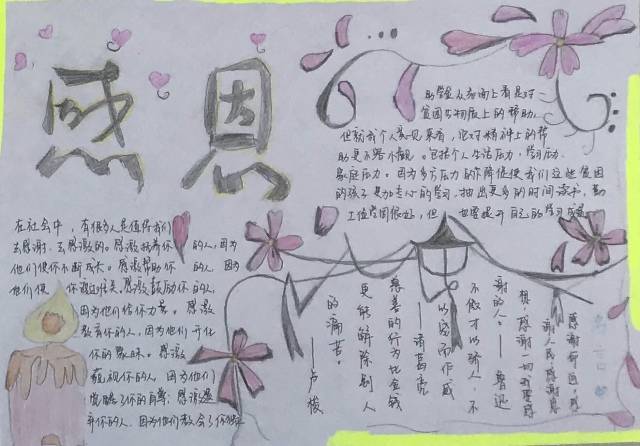 感恩
助学金从表面上看是对
贫困生物质上的帮助，
但就我个人意见来看，它对精神上的帮
助更不容小觑。包括个人生活压力，学习压力，
家庭压力。因为多方压力的下降促使我们这些贫困
的孩子更加专心的学习，抽出更多的时间读书，勤
工俭学固然好，但也要提升自己的学习成绩
在社会中，有很多人是值得我们
去感谢，去感激的。感激抚养你的人，因为
他们使你不断成长。感激帮助你的人，因为
他们使你渡过难关。感激鼓励你的人，
因为他们给你力量。感激
教育你的人，因为他们开化
你的蒙昧。感激
藐视你的人，因为他们
觉醒了你的自尊；感激遗
弃你的人，因为他们教会了你独立
感谢命运，感
谢人民，感谢思
想，感谢一切我要感
谢的人。——鲁迅
不傲才以骄人，不
以宠而作威
——诸葛亮
慈善的行为比金钱
更能解除别人
的痛苦。
——卢梭